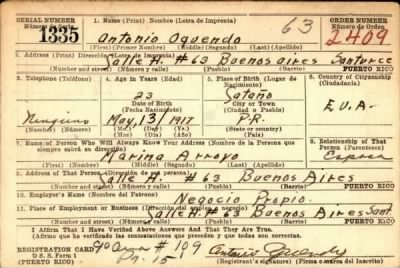 SERIAL NUMBER
Número de Serie
1335
1. Name (Print) Nombre (Letra de Imprenta)
63
ORDER NUMBER
Número de Orden
2409
Antonio Oquendo
(First) (Primer Nombre) (Middle) (Segundo) (Last) (Apellido)
2. Address (Print) Dirección (Letra de Imprenta)
Calle A. #63 Buenos Aires Santurce
(Number and street) (Número y calle) (Town) (Pueblo) (Barrio) PUERTO RICO
3. Telephone (Teléfono)
4. Age in Years (Edad)
5. Place of Birth (Lugar de Nacimiento)
6. Country of Citizenship (Ciudadanía)
23
Date of Birth
Fecha de Nacimiento
City or Town
(Ciudad o Pueblo)
E.U.A.
Ninguno
May. 13 / 1917
P.R.
(Number) (Número)
(Mo.) (Mes) (Day) (Día) (Yr.) (Año)
(State or country) (Estado o país)
7. Name of Person Who Will Always Know Your Address (Nombre de la Persona que siempre sabrá su dirección)
8. Relationship of That Person (Parentesco)
Marina Arroyo
Esposa
(First) (Nombre) (Middle) (Segundo) (Last) (Apellido)
9. Address of That Person (Dirección de esa persona)
Calle A. #63 Buenos Aires
(Number and street) (Número y calle) (Town) (Pueblo) (Barrio) PUERTO RICO
10. Employer's Name (Nombre del Patrono)
Negocio Propio.
11. Place of Employment or Business (Dirección del empleo o negocio)
Calle A. #63 Buenos Aires Sant.
(Number and street) (Número y calle) (Town) (Pueblo) (Barrio) PUERTO RICO
I Affirm That I Have Verified Above Answers And That They Are True.
(Afirmo que he verificado las contestaciones que preceden y que éstas son ciertas.)
REGISTRATION CARD
D. S. S. Form 1
(PUERTO RICO)
# 109
Antonio Oquendo
(Registrant's signature) (Firma o marca del Inscrito)